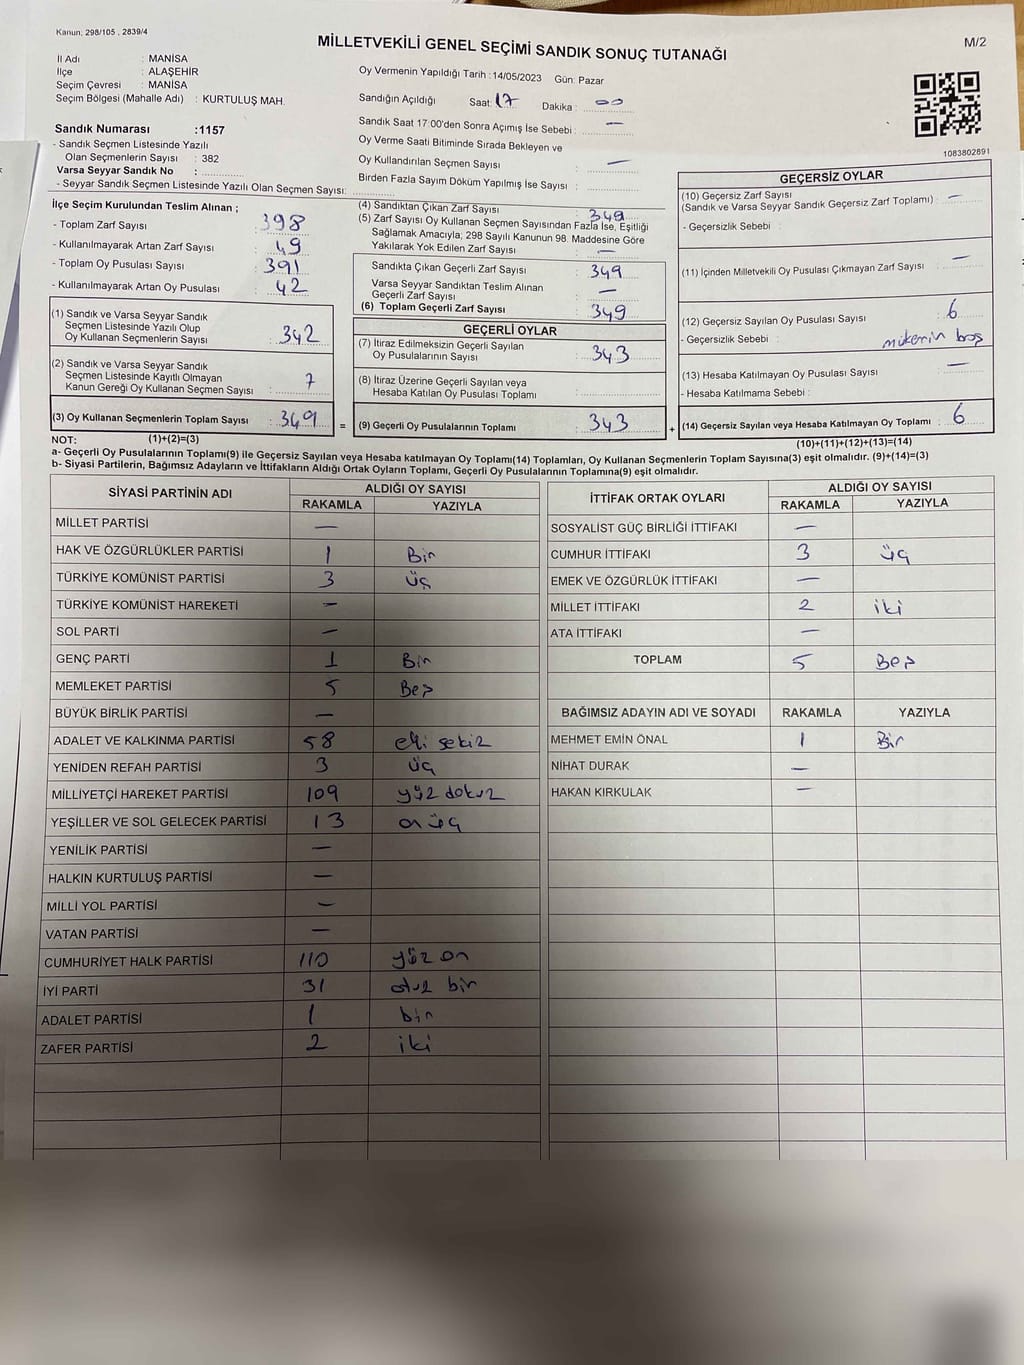 Kanun: 298/105 , 2839/4
MİLLETVEKİLİ GENEL SEÇİMİ SANDIK SONUÇ TUTANAĞI
M/2
İl Adı : MANİSA
İlçe : ALAŞEHİR
Seçim Çevresi : MANİSA
Seçim Bölgesi (Mahalle Adı) : KURTULUŞ MAH.
Oy Vermenin Yapıldığı Tarih :14/05/2023 Gün: Pazar
Sandığın Açıldığı Saat: 17 Dakika : 00
Sandık Saat 17:00'den Sonra Açımış İse Sebebi : —
Oy Verme Saati Bitiminde Sırada Bekleyen ve
Oy Kullandırılan Seçmen Sayısı : —
Birden Fazla Sayım Döküm Yapılmış İse Sayısı :
1083802691
Sandık Numarası :1157
- Sandık Seçmen Listesinde Yazılı
Olan Seçmenlerin Sayısı : 382
Varsa Seyyar Sandık No :
- Seyyar Sandık Seçmen Listesinde Yazılı Olan Seçmen Sayısı:
İlçe Seçim Kurulundan Teslim Alınan ;
- Toplam Zarf Sayısı : 398
- Kullanılmayarak Artan Zarf Sayısı : 49
- Toplam Oy Pusulası Sayısı : 391
- Kullanılmayarak Artan Oy Pusulası : 42
(1) Sandık ve Varsa Seyyar Sandık
Seçmen Listesinde Yazılı Olup
Oy Kullanan Seçmenlerin Sayısı : 342
(2) Sandık ve Varsa Seyyar Sandık
Seçmen Listesinde Kayıtlı Olmayan
Kanun Gereği Oy Kullanan Seçmen Sayısı : 7
(3) Oy Kullanan Seçmenlerin Toplam Sayısı : 349 =
(4) Sandıktan Çıkan Zarf Sayısı : 349
(5) Zarf Sayısı Oy Kullanan Seçmen Sayısından Fazla İse, Eşitliği
Sağlamak Amacıyla; 298 Sayılı Kanunun 98. Maddesine Göre
Yakılarak Yok Edilen Zarf Sayısı : —
Sandıkta Çıkan Geçerli Zarf Sayısı : 349
Varsa Seyyar Sandıktan Teslim Alınan
Geçerli Zarf Sayısı : —
(6) Toplam Geçerli Zarf Sayısı : 349
GEÇERLİ OYLAR
(7) İtiraz Edilmeksizin Geçerli Sayılan
Oy Pusulalarının Sayısı : 343
(8) İtiraz Üzerine Geçerli Sayılan veya
Hesaba Katılan Oy Pusulası Toplamı :
(9) Geçerli Oy Pusulalarının Toplamı : 343 +
GEÇERSİZ OYLAR
(10) Geçersiz Zarf Sayısı
(Sandık ve Varsa Seyyar Sandık Geçersiz Zarf Toplamı) : —
- Geçersizlik Sebebi :
(11) İçinden Milletvekili Oy Pusulası Çıkmayan Zarf Sayısı : —
(12) Geçersiz Sayılan Oy Pusulası Sayısı : 6
- Geçersizlik Sebebi : boş
(13) Hesaba Katılmayan Oy Pusulası Sayısı : —
- Hesaba Katılmama Sebebi :
(14) Geçersiz Sayılan veya Hesaba Katılmayan Oy Toplamı : 6
(10)+(11)+(12)+(13)=(14)
NOT: (1)+(2)=(3)
a- Geçerli Oy Pusulalarının Toplamı(9) ile Geçersiz Sayılan veya Hesaba katılmayan Oy Toplamı(14) Toplamları, Oy Kullanan Seçmenlerin Toplam Sayısına(3) eşit olmalıdır. (9)+(14)=(3)
b- Siyasi Partilerin, Bağımsız Adayların ve İttifakların Aldığı Ortak Oyların Toplamı, Geçerli Oy Pusulalarının Toplamına(9) eşit olmalıdır.
SİYASİ PARTİNİN ADI ALDIĞI OY SAYISI
RAKAMLA YAZIYLA
MİLLET PARTİSİ —
HAK VE ÖZGÜRLÜKLER PARTİSİ 1 Bir
TÜRKİYE KOMÜNİST PARTİSİ 3 üç
TÜRKİYE KOMÜNİST HAREKETİ —
SOL PARTİ —
GENÇ PARTİ 1 Bir
MEMLEKET PARTİSİ 5 Beş
BÜYÜK BİRLİK PARTİSİ —
ADALET VE KALKINMA PARTİSİ 58 elli sekiz
YENİDEN REFAH PARTİSİ 3 üç
MİLLİYETÇİ HAREKET PARTİSİ 109 yüz dokuz
YEŞİLLER VE SOL GELECEK PARTİSİ 13 on üç
YENİLİK PARTİSİ —
HALKIN KURTULUŞ PARTİSİ —
MİLLİ YOL PARTİSİ —
VATAN PARTİSİ —
CUMHURİYET HALK PARTİSİ 110 yüz on
İYİ PARTİ 31 otuz bir
ADALET PARTİSİ 1 bir
ZAFER PARTİSİ 2 iki
İTTİFAK ORTAK OYLARI ALDIĞI OY SAYISI
RAKAMLA YAZIYLA
SOSYALİST GÜÇ BİRLİĞİ İTTİFAKI —
CUMHUR İTTİFAKI 3 üç
EMEK VE ÖZGÜRLÜK İTTİFAKI —
MİLLET İTTİFAKI 2 iki
ATA İTTİFAKI —
TOPLAM 5 Beş
BAĞIMSIZ ADAYIN ADI VE SOYADI RAKAMLA YAZIYLA
MEHMET EMİN ÖNAL 1 Bir
NİHAT DURAK —
HAKAN KIRKULAK —